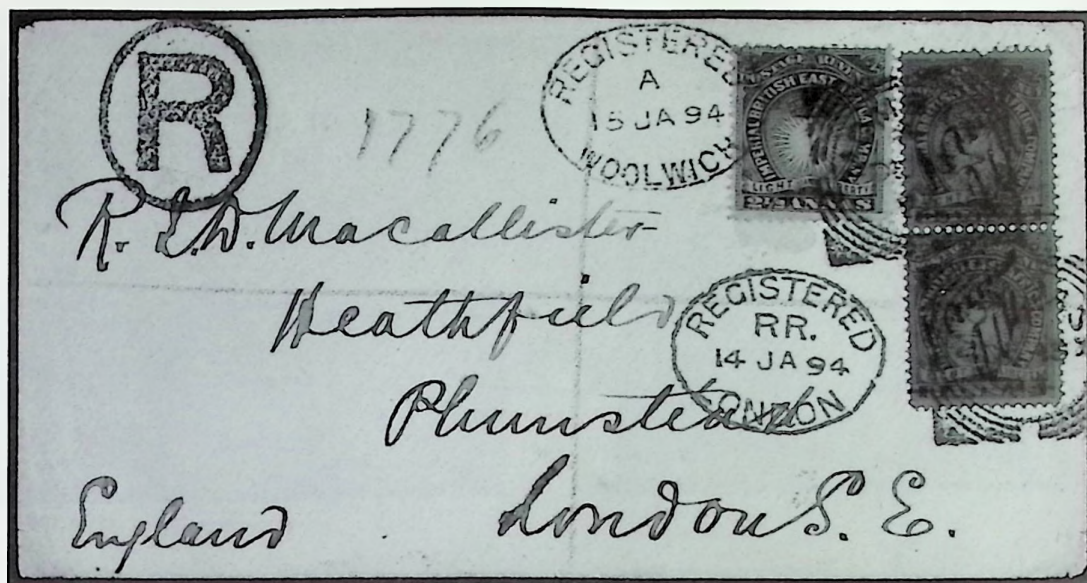 R
1776
REGISTERED
A
15 JA 94
WOOLWICH
POSTAGE
IMPERIAL BRITISH EAST AFRICA COMPANY
LIGHT LIBERTY
2½ ANNAS
R. E. D. Macallister
Heathfield
REGISTERED
RR.
14 JA 94
LONDON
Plumstead
London S. E.
England